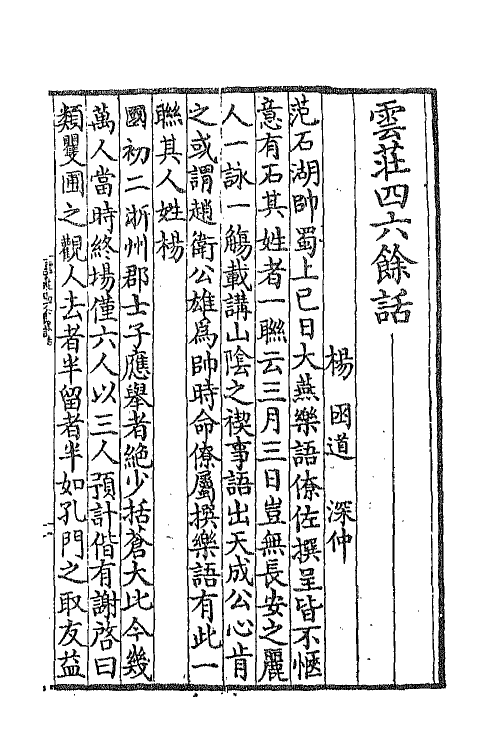 雲莊四六餘話
楊 囦道 深仲
范石湖帥蜀上巳日大燕樂語僚佐撰呈皆不愜
意有石其姓者一聯云三月三日豈無長安之麗
人一詠一觴載講山陰之禊事語出天成公心肯
之或謂趙衛公雄爲帥時命僚屬撰樂語有此一
聯其人姓楊
國初二浙州郡士子應舉者絶少括蒼大比今幾
萬人當時終場僅六人以三人預計偕有謝啓曰
類矍圃之觀人去者半留者半如孔門之取友益